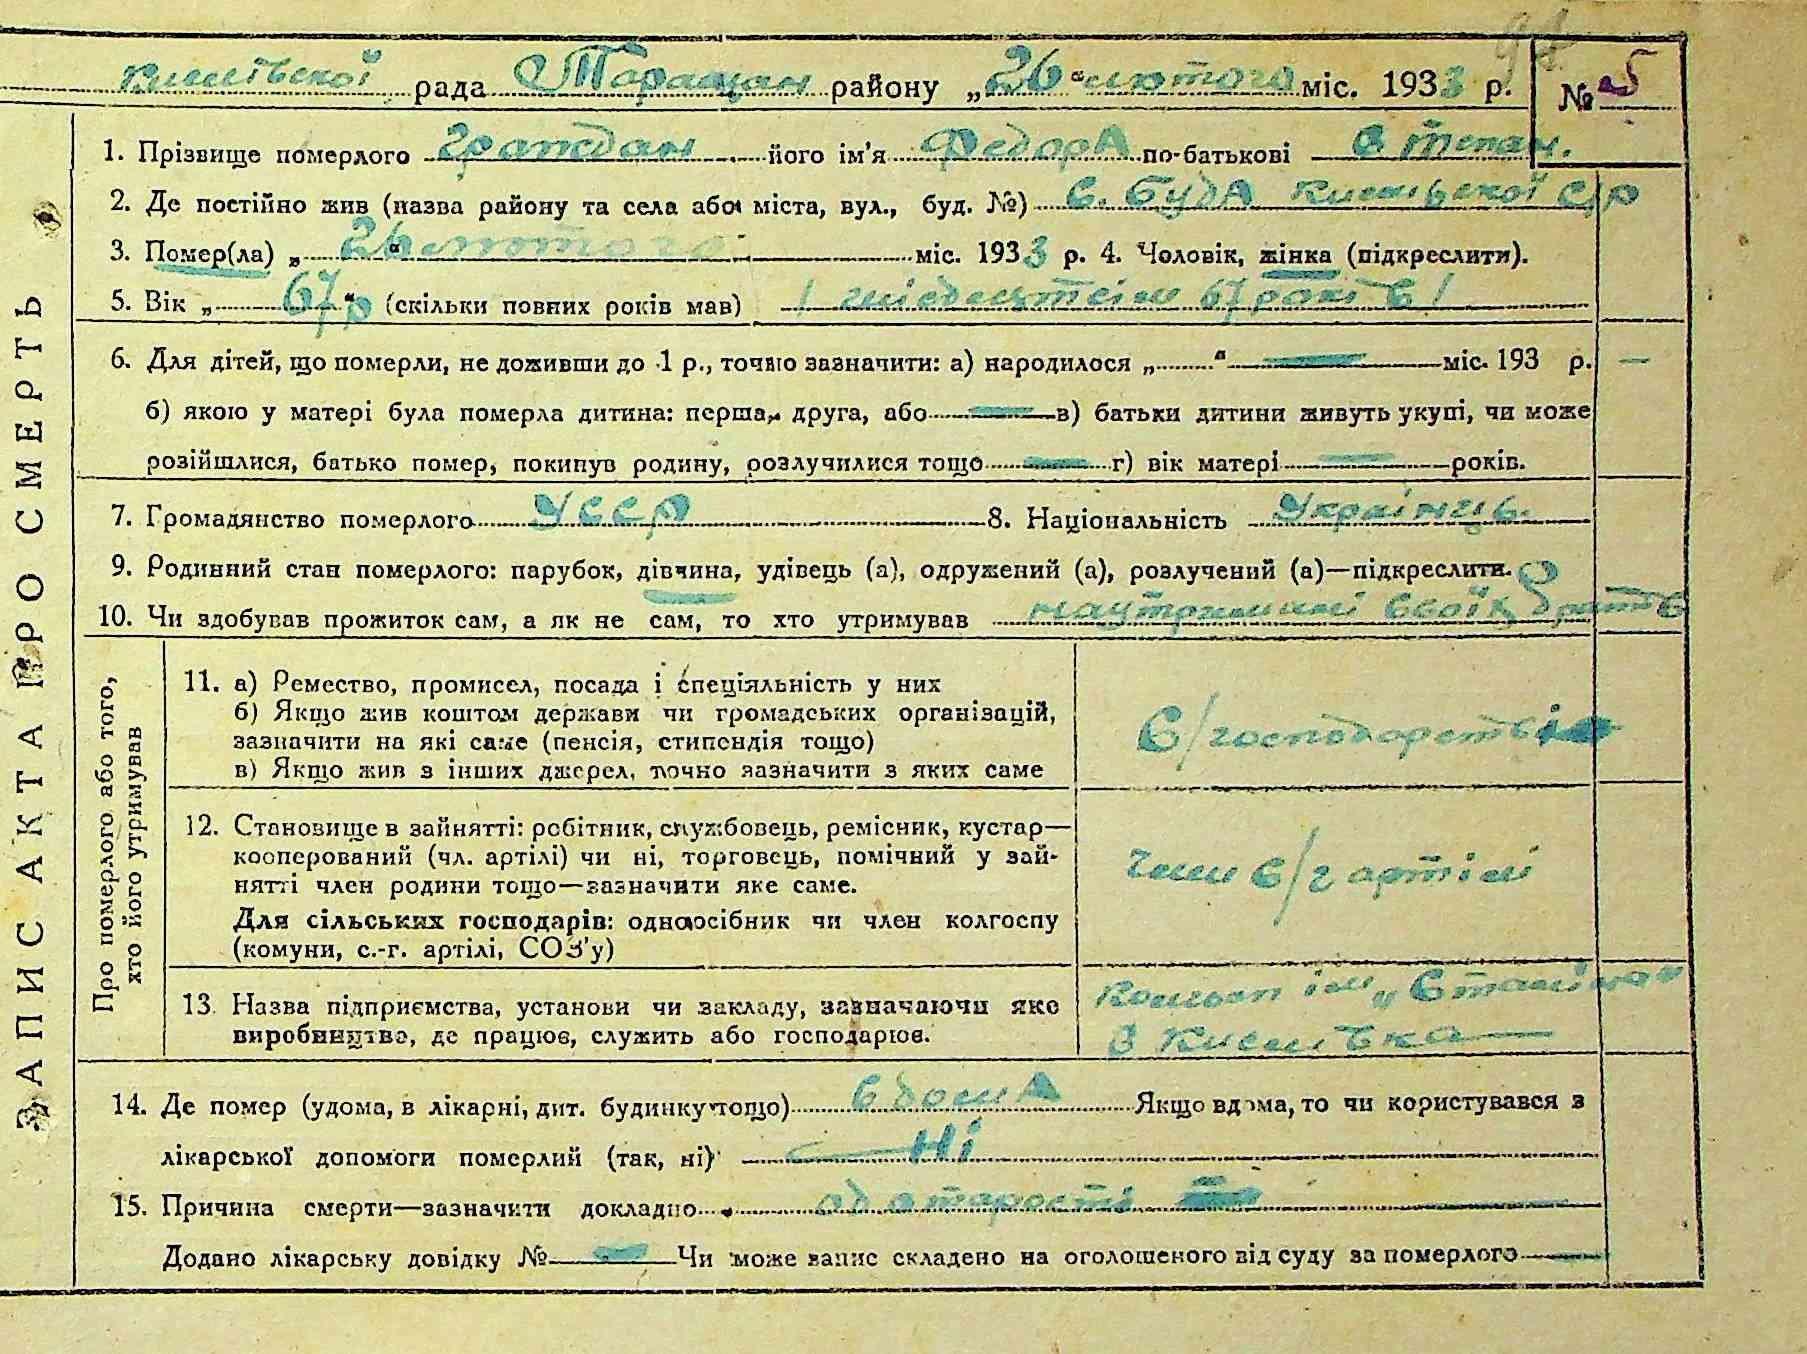 Кислівської рада Таращан району „26“ лютого міс. 1933 р. № 5
1. Прізвище померлого Граждан його ім'я Федора по-батькові Степан.
2. Де постійно жив (назва району та села або міста, вул., буд. №) с. Буда Кислівської с/р
3. Помер(ла) „26“ лютого міс. 1933 р. 4. Чоловік, жінка (підкреслити).
5. Вік „67“р (скільки повних років мав) 67 років
6. Для дітей, що померли, не доживши до 1 р., точно зазначити: а) народилося „ “ — міс. 193 р. —
б) якою у матері була померла дитина: перша, друга, або — в) батьки дитини живуть укупі, чи може
розійшлися, батько помер, покинув родину, розлучилися тощо — г) вік матері — років.
7. Громадянство померлого УССР 8. Національність Українць.
9. Родинний стан померлого: парубок, дівчина, удівець (а), одружений (а), розлучений (а)—підкреслити.
10. Чи здобував прожиток сам, а як не сам, то хто утримував на утриманні своїх братів
ЗАПИС АКТА ПРО СМЕРТЬ
Про померлого або того,
хто його утримував
11. а) Ремество, промисел, посада і спеціяльність у них
б) Якщо жив коштом держави чи громадських організацій,
зазначити на які саме (пенсія, стипендія тощо)
в) Якщо жив з інших джерел, точно зазначити з яких саме
С/господарстві
12. Становище в зайнятті: робітник, службовець, ремісник, кустар—
кооперований (чл. артілі) чи ні, торговець, помічний у зай-
нятті член родини тощо—зазначити яке саме.
Для сільських господарів: одноосібник чи член колгоспу
(комуни, с.-г. артілі, СОЗ'у)
член с/г артілі
13. Назва підприємства, установи чи закладу, зазначаючи яке
виробництво, де працює, служить або господарює.
ім „Сталіна“
в Кислівка
14. Де помер (удома, в лікарні, дит. будинку тощо) в дома Якщо вдома, то чи користувався з
лікарської допомоги померлий (так, ні) Ні
15. Причина смерти—зазначити докладно од старості
Додано лікарську довідку № — Чи може запис складено на оголошеного від суду за померлого —